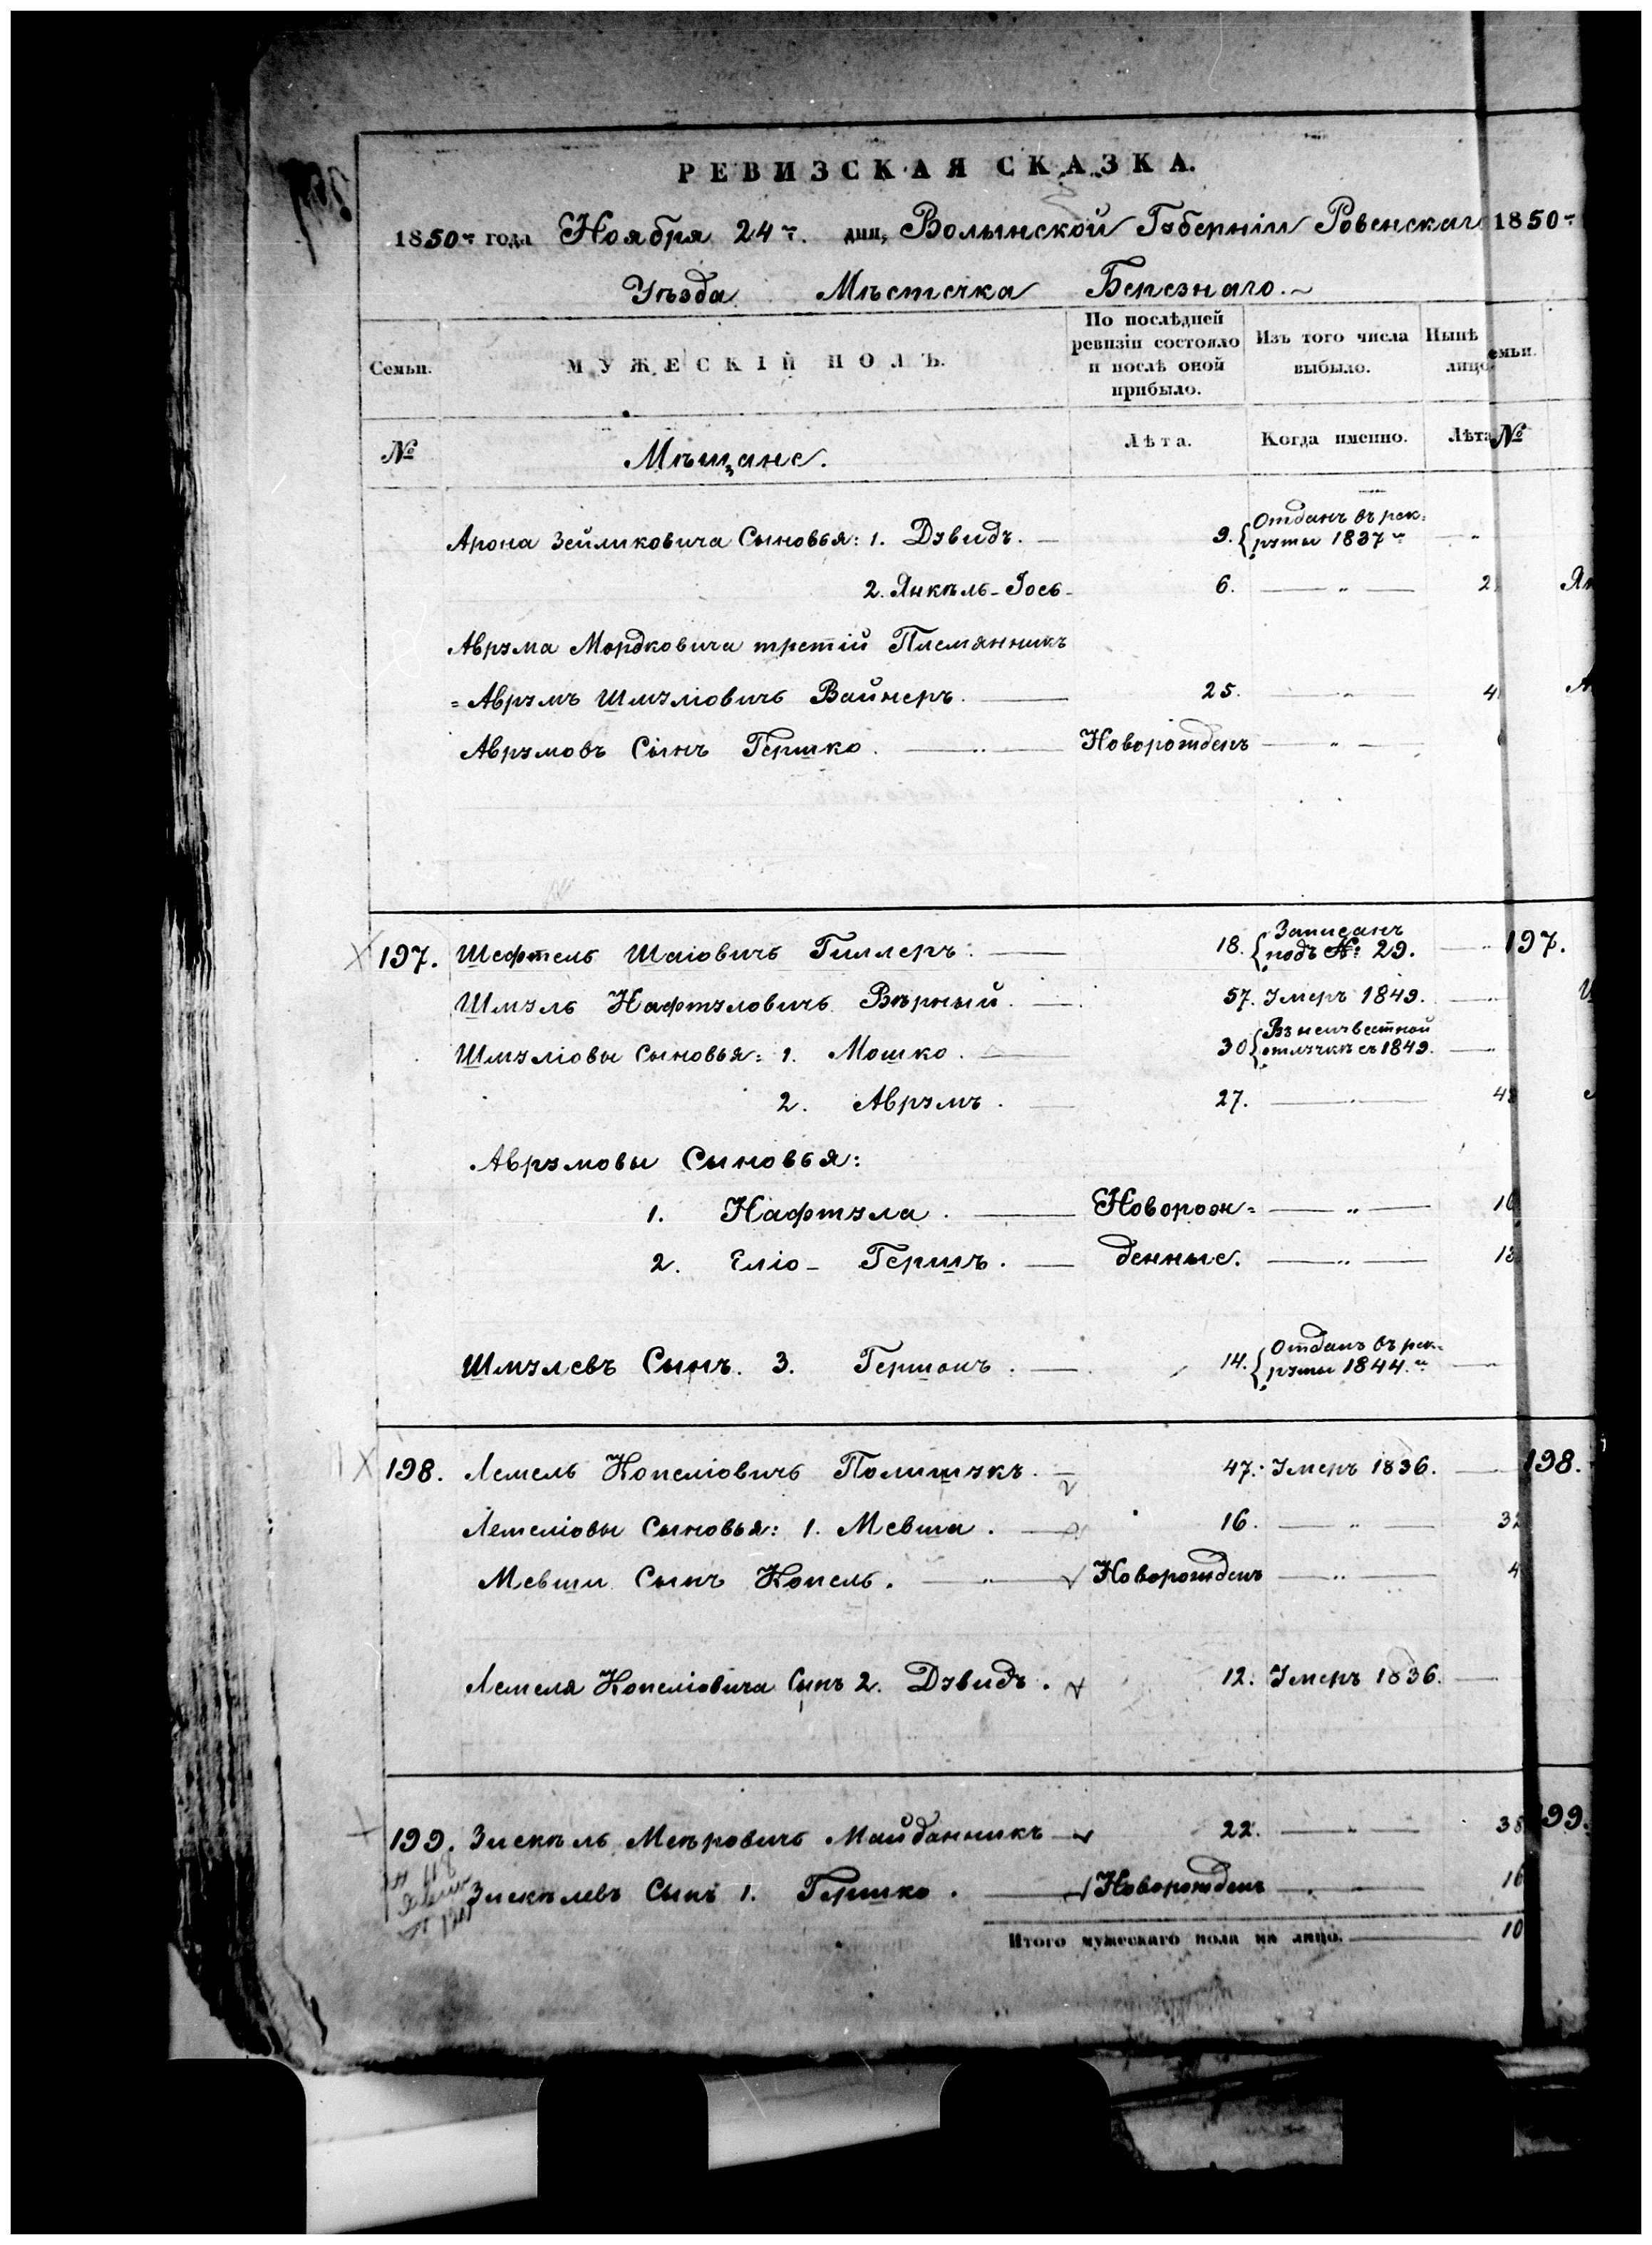 РЕВИЗСКАЯ СКАЗКА.
1850го года Ноября 24го дня, Волынской Губерніи Ровенскаго 1850го
Уѣзда Мѣстечка Березнаго.
Семьи. МУЖЕСКІЙ ПОЛЪ. По послѣдней ревизіи состояло и послѣ оной прибыло. Изъ того числа выбыло. Нынѣ лицо емьи.
№ Мѣщане. Лѣта. Когда именно. Лѣта №
Арона Зейликовича Сыновья: 1. Дувидъ. — 9. Отданъ въ рек=
руты 1837го — "
2. Янкѣль-Іось- 6. — " — 2
Аврума Мордковича третій Племянникъ
=Аврумъ Шмуліовичъ Вайнеръ. — 25. — " — 4
Аврумовъ Сынъ Гершко. — " — Новорожденъ — " —
197. Шефтель Шаіовичъ Гиллеръ: — 18. Записанъ
подъ №: 29. — " 197.
Шмуль Нафтуловичъ Вѣрный. — 57. Умеръ 1849. —
Шмуліовы Сыновья: 1. Мошко. — 30 Въ неизвестной
отлучкѣ съ 1849. —
2. Аврумъ. — 27. — " — 4
Аврумовы Сыновья:
1. Нафтула. — Новорож= — " — 1
2. Еліо- Гершъ. — денные. — " — 1
Шмулевъ Сынъ. 3. Гершонъ. — 14. Отданъ въ рек=
руты 1844.го —
198. Лемель Копеліовичъ Полишукъ. — 47. Умеръ 1836. — 198.
Лемеліовы Сыновья: 1. Мевша. — 16. — " — 32
Мевши Сынъ Копель. — " — Новорожденъ — " — 4
Лемеля Копеліовича Сынъ 2. Дувидъ. 12. Умеръ 1836. —
199. Зискѣль Меѣровичъ Майданникъ — 22. — " — 38 99.
Зискѣлевъ Сынъ 1. Гершко. — Новорожденъ — " — 16
Итого мужескаго пола на лицо. — 10